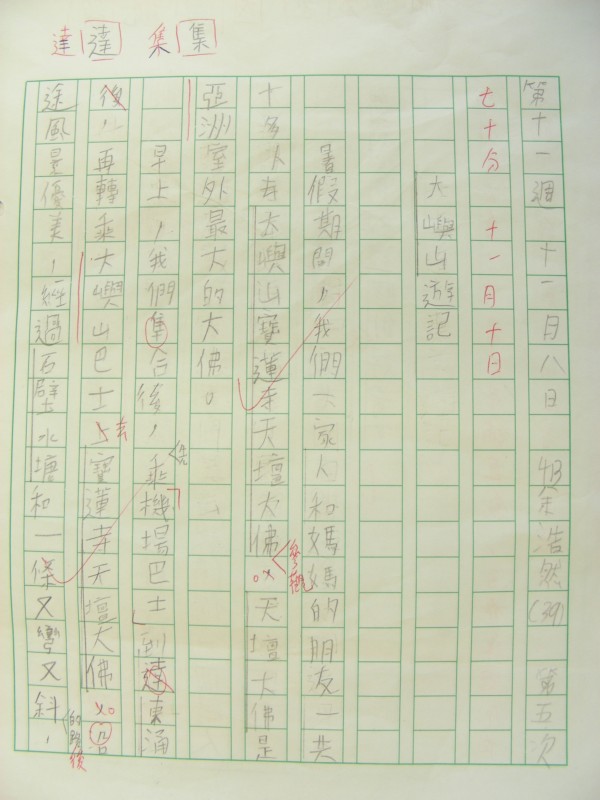 達 達 集 集
第十一週 十一月八日 浩然(39) 第五次
七十分 十一月十日
大嶼山遊記
暑假期間，我們一家人和媽媽的朋友一共
十多人去大嶼山寶蓮寺天壇大佛參觀。天壇大佛是
亞洲室外最大的大佛。
早上，我們集合後，乘機場巴士到達東涌
後，再轉乘大嶼山巴士去寶蓮寺天壇大佛。沿
途風景優美，經過石壁水塘和一條又彎又斜的路後，